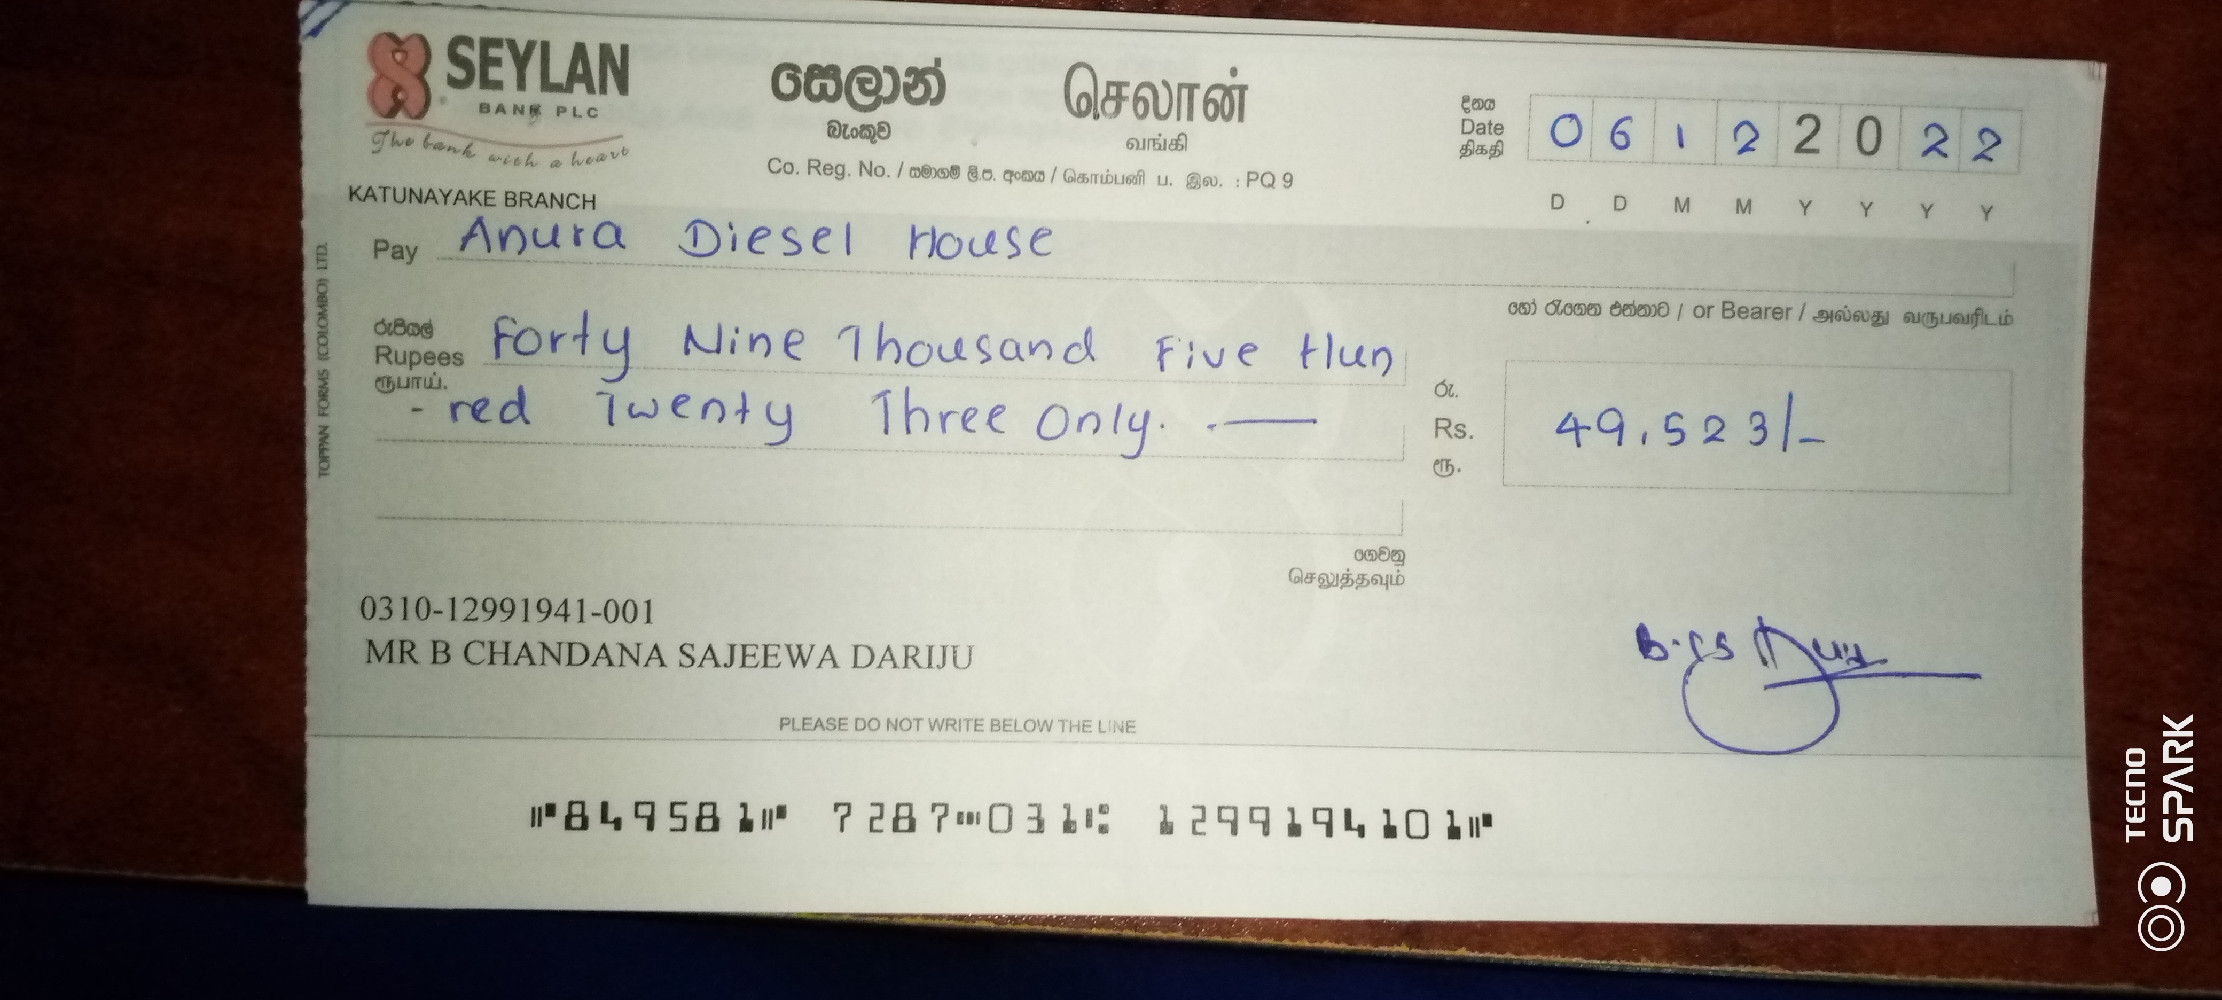 SEYLAN
BANK PLC
The bank with a heart
සෙලාන්
බැංකුව
செலான்
வங்கி
Co. Reg. No. / සමාගම් ලි.ප. අංකය / கொம்பனி ப. இல. : PQ 9
දිනය
Date
திகதி
0 6 1 2 2 0 2 2
D D M M Y Y Y Y
KATUNAYAKE BRANCH
Pay Anura Diesel House
හෝ රැගෙන එන්නාට / or Bearer / அல்லது வருபவரிடம்
රුපියල්
Rupees Forty Nine Thousand Five Hun
ரூபாய்.
- red Twenty Three Only.
රු.
Rs. 49,523/-
ரூ.
ගෙවනු
செலுத்தவும்
TOPPAN FORMS (COLOMBO) LTD.
0310-12991941-001
MR B CHANDANA SAJEEWA DARIJU
PLEASE DO NOT WRITE BELOW THE LINE
⑈849581⑈ 7287⑉031⑆ 129919 4101⑈
TECNO
SPARK